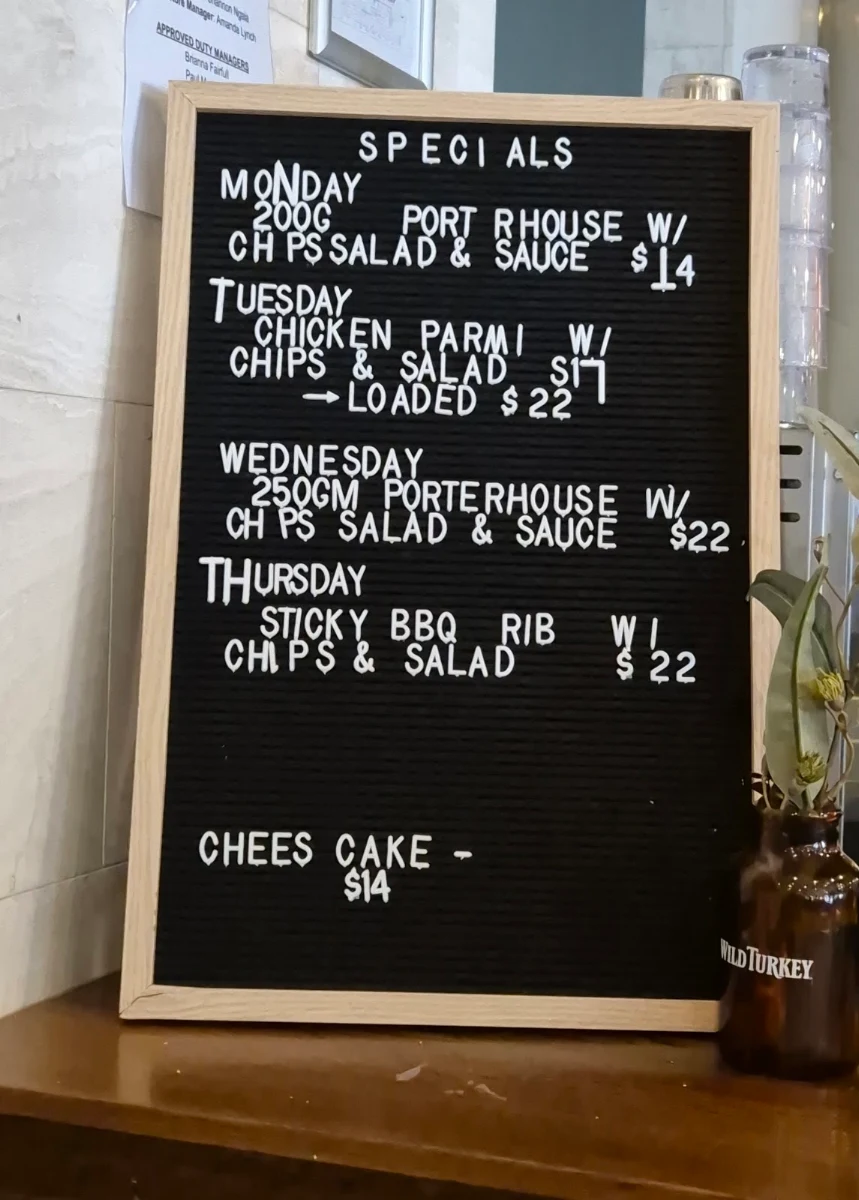 Shannon Ngaia
Manager: Amanda Lynch
APPROVED DUTY MANAGERS
Brianna Fairfull
Paul
SPECIALS
MONDAY
200G PORT RHOUSE W/
CH PS SALAD & SAUCE $14
TUESDAY
CHICKEN PARMI W/
CHIPS & SALAD $17
→ LOADED $22
WEDNESDAY
250GM PORTERHOUSE W/
CH PS SALAD & SAUCE $22
THURSDAY
STICKY BBQ RIB W I
CHIPS & SALAD $22
CHEES CAKE -
$14
WILD TURKEY